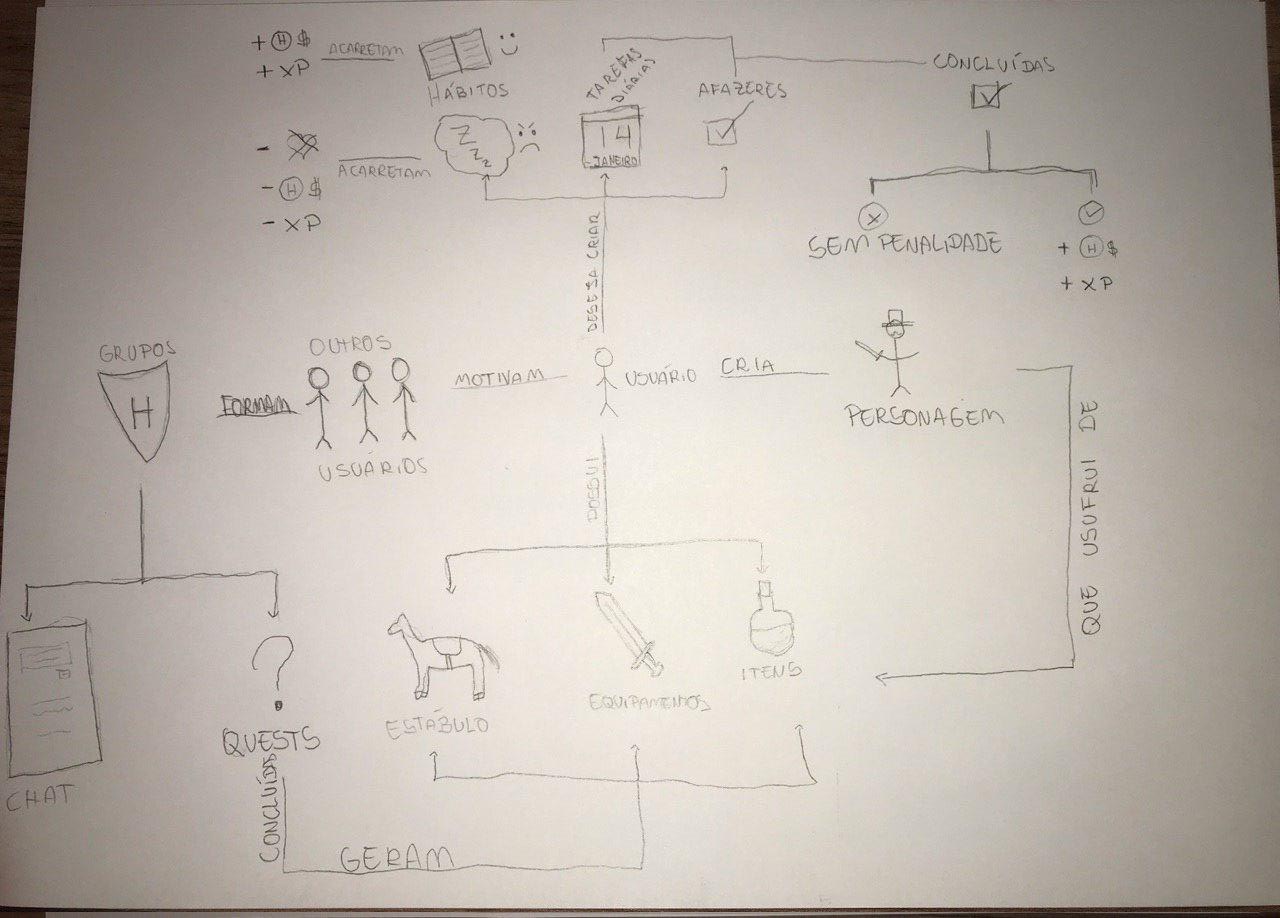 + H $
+ XP
ACARRETAM
HÁBITOS
TAREFAS
DIÁRIAS
AFAZERES
CONCLUÍDAS
Z
Z
Z
Z
14
JANEIRO
-
- H $
- XP
ACARRETAM
X
SEM PENALIDADE
+ H $
+ XP
DESEJA CRIAR
GRUPOS
H
FORMAM
OUTROS
USUÁRIOS
MOTIVAM
USUÁRIO
CRIA
PERSONAGEM
QUE USUFRUI DE
POSSUI
ESTÁBULO
EQUIPAMENTOS
ITENS
?
QUESTS
CHAT
CONCLUÍDAS
GERAM